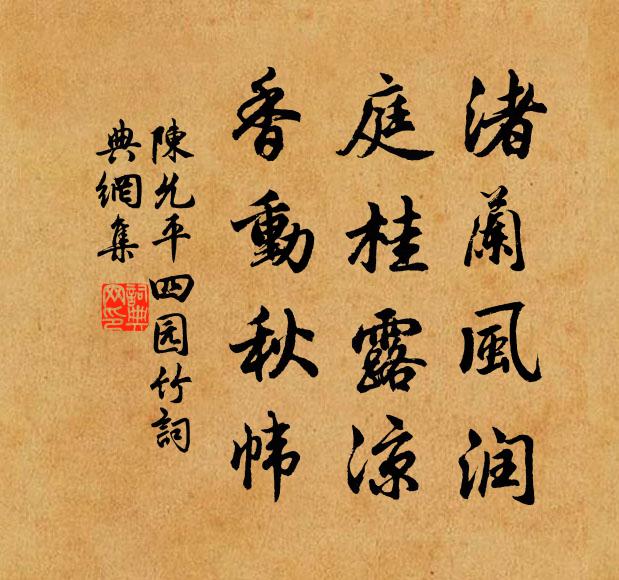 渚蘭風润
庭桂露凉
香動秋帏
陳允平四园竹詞
典網集
詞典网印